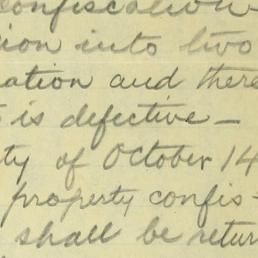 confiscation
ion into two
ation and there
is defective –
ty of October 14
property confis-
shall be retur